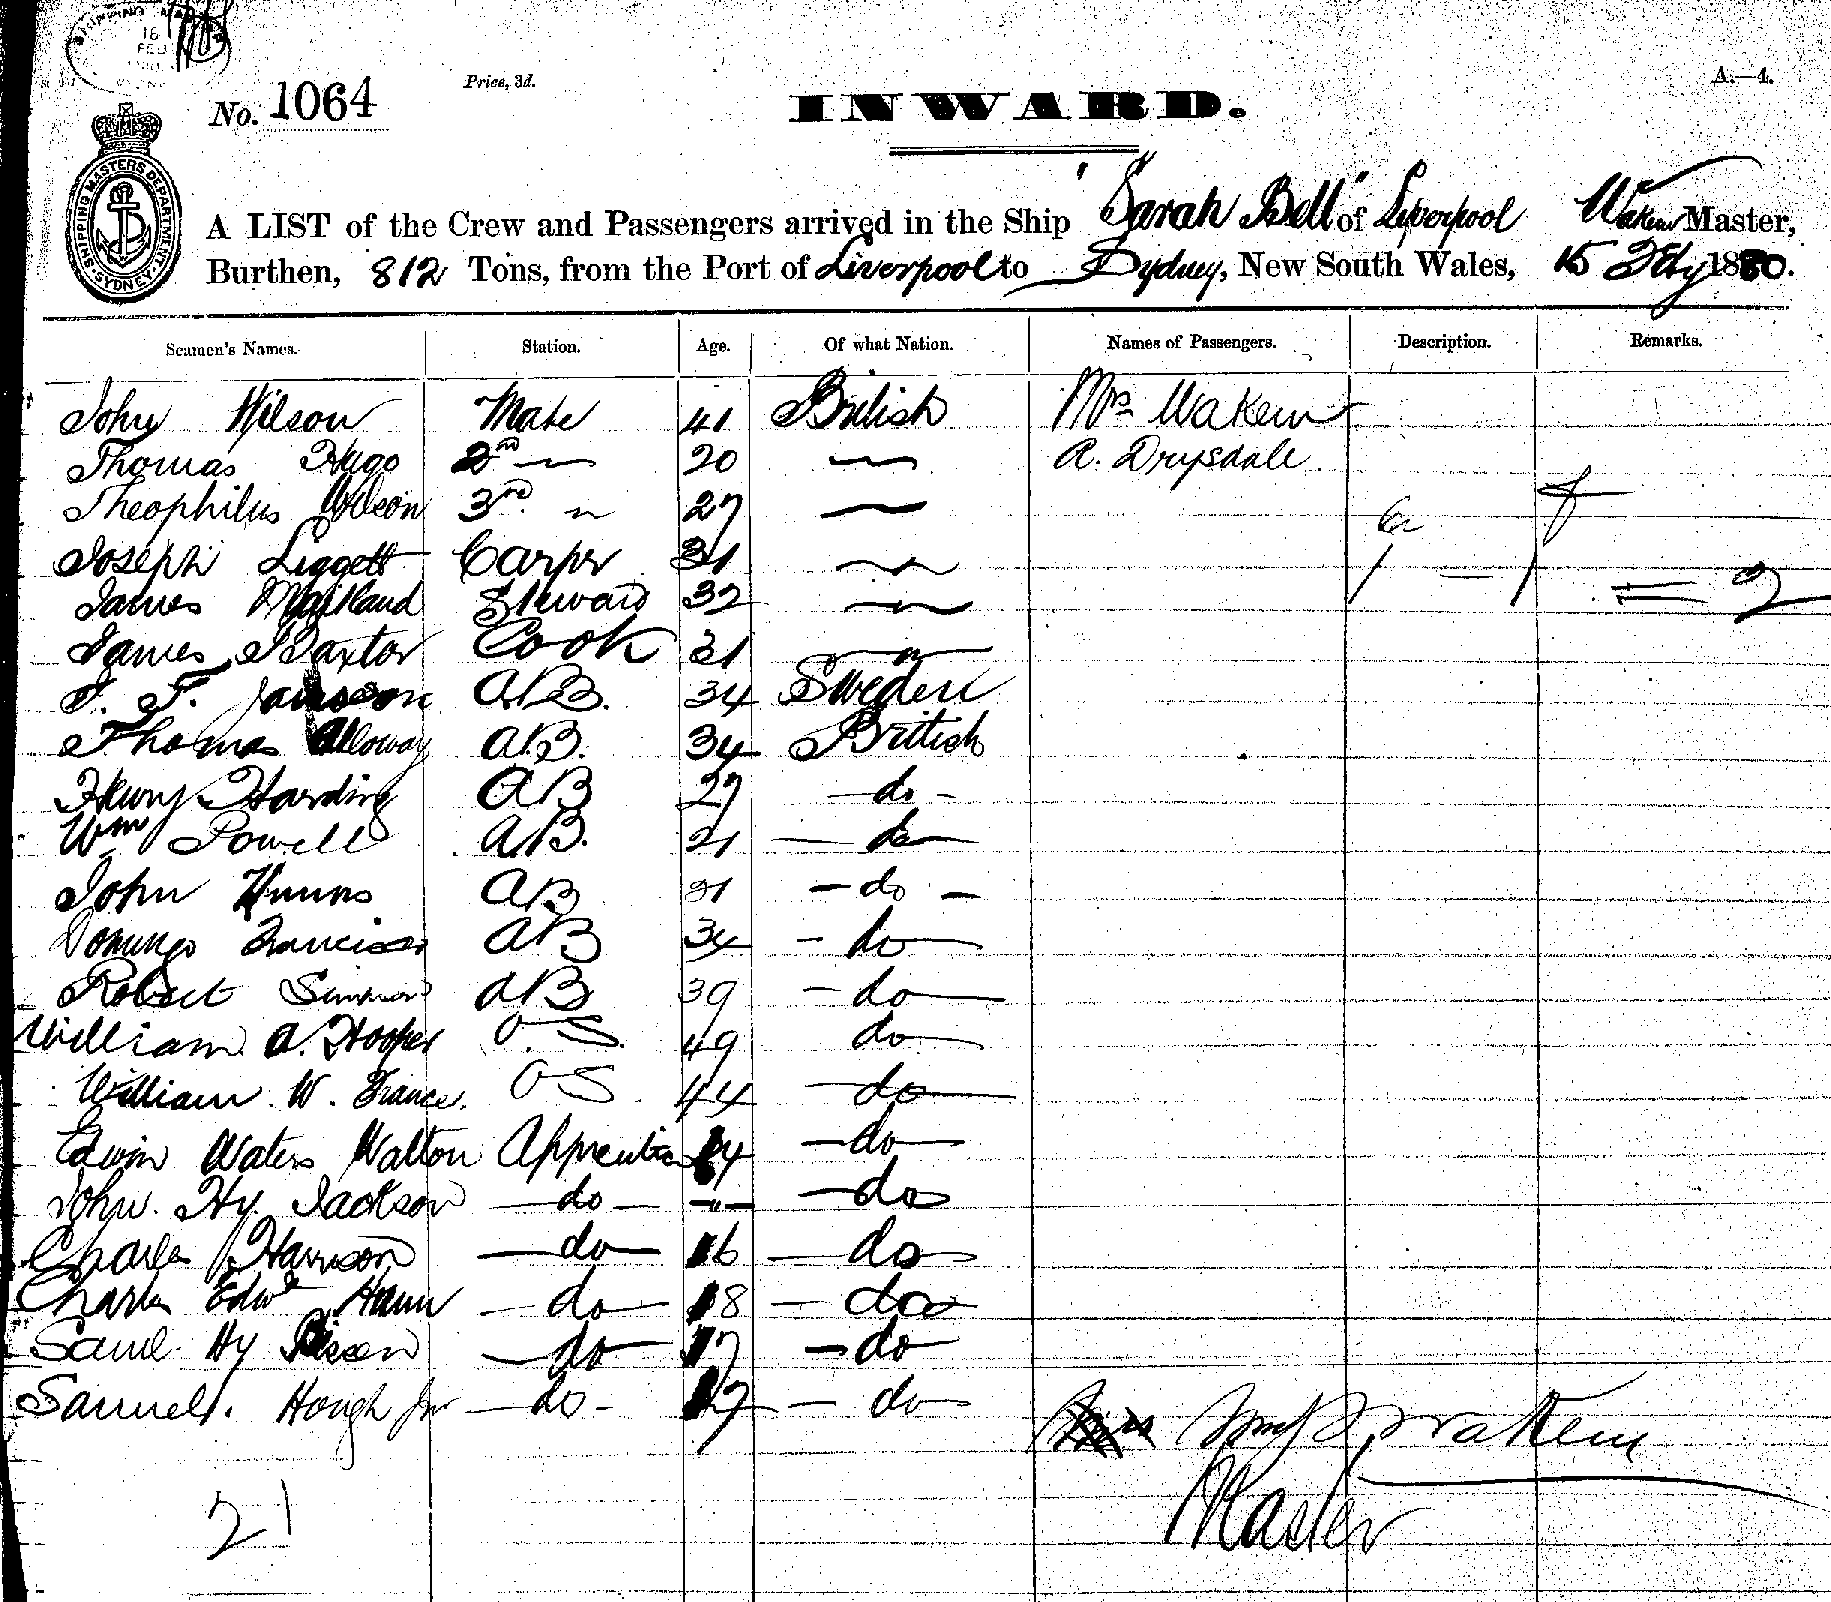 16
FEB
No. 1064
Price, 3d.
A.—4.
INWARD.
SHIPPING MASTERS DEPARTMENT SYDNEY
A LIST of the Crew and Passengers arrived in the Ship "Sarah Bell" of Liverpool Wakem Master,
Burthen, 812 Tons, from the Port of Liverpool to Sydney, New South Wales, 15 Feby 1880.
Seamen's Names. Station. Age. Of what Nation. Names of Passengers. Description. Remarks.
John Wilson Mate 41 British Mrs Wakem
Thomas Hugo 2nd " 20 " A. Drysdale
Theophilus Wilson 3rd " 27 "
Joseph Liggett Carpr 31 "
James Maitland Steward 32 "
1 — 1 = 2
James Baxter Cook 31 "
J. F. Jansson AB. 34 Sweden
Thomas Alloway AB. 34 British
Henry Harding AB 27 — do —
Wm Powell AB. 21 — do
John AB 31 — do —
Domingo Francisco AB 34 — do —
Robert Simpson AB 39 — do —
William A. Hooper O.S. 49 do —
William W. France. OS 44 — do —
Edwin Waters Walton Apprentice 14 — do —
John Hy. Jackson — do — " — do
Charles Harrison — do — 16 — do —
Charles Edwd Hann — do — 18 — do —
Saml. Hy — do — 17 — do —
Samuel. Hough Jnr — do — 17 — do —
Wakem
Master
21